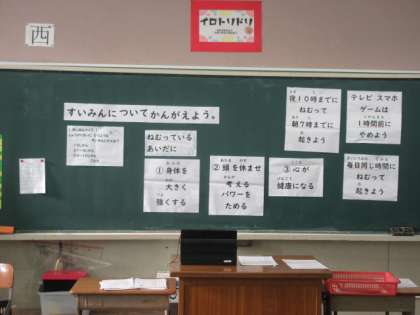 西
イロトリドリ
すいみんについてかんがえよう。
ねむっている
あいだに
①身体を
大きく
強くする
②頭を休ませ
考える
パワーを
ためる
③心が
健康になる
夜10時までに
ねむって
朝7時までに
起きよう
テレビ スマホ
ゲームは
1時間前に
やめよう
毎日同じ時間に
ねむって
起きよう